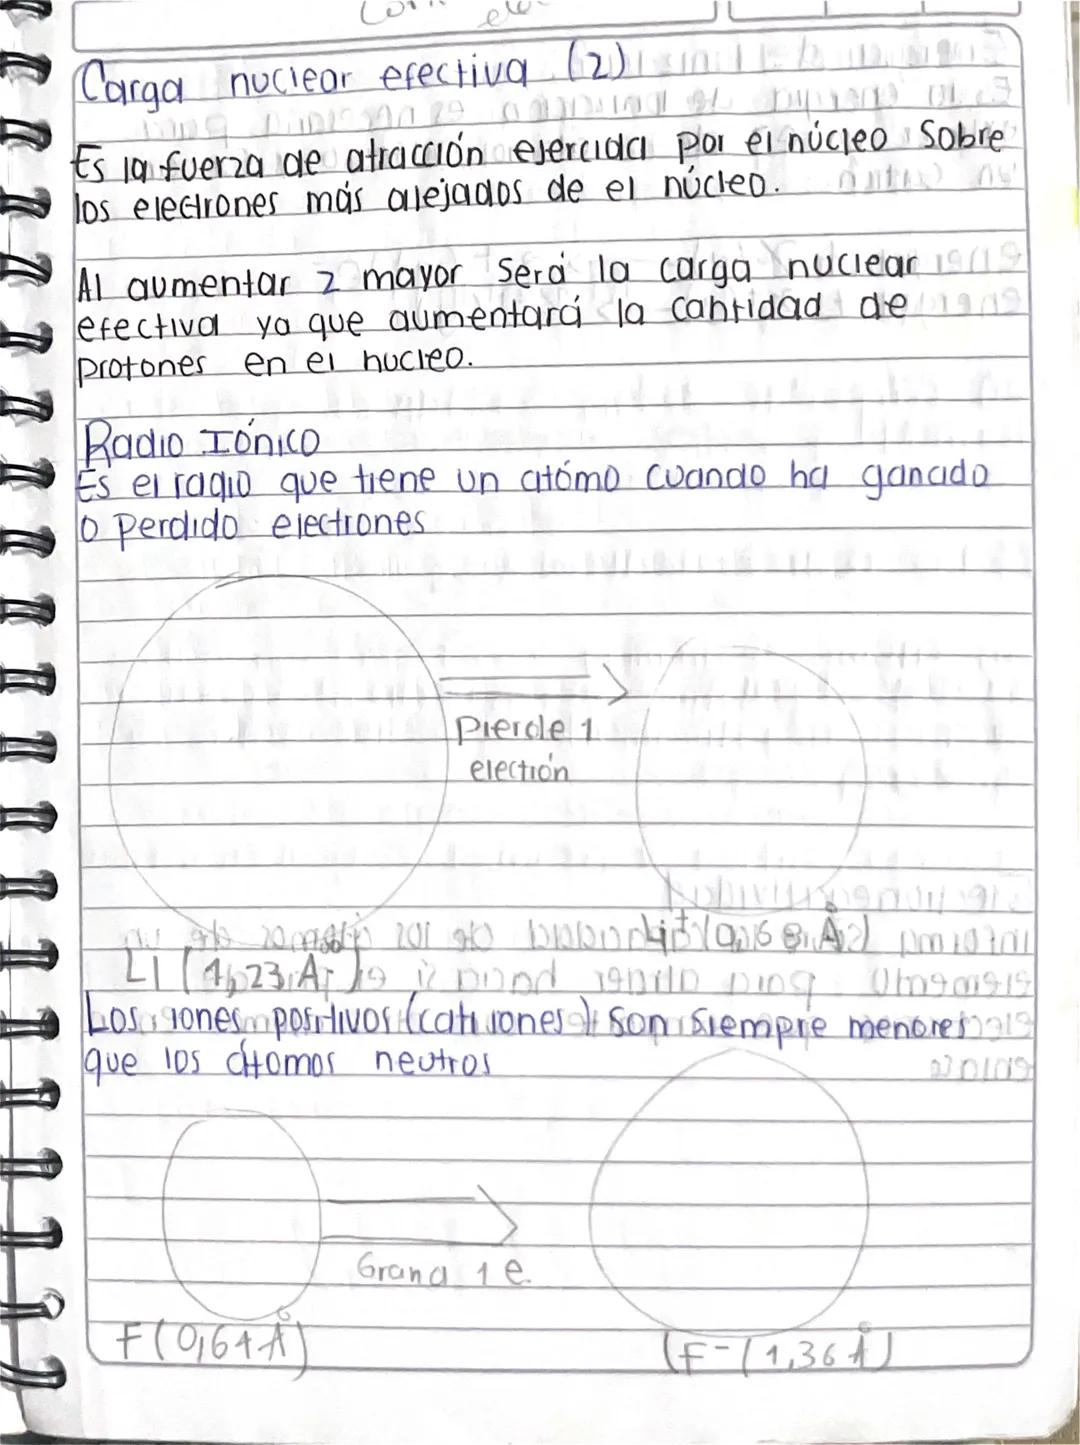 Carga nuclear efectiva (2)
Es la fuerza de atracción ejercida por el núcleo sobre
los electrones más alejados de el núcleo.
Al aumentar z mayor será la carga nuclear
efectiva ya que aumentará la cantidad de
protones en el nucleo.
Radio Iónico
Es el radio que tiene un atómo cuando ha ganado
o perdido electrones
Pierde 1
electrón
Li+ (0,68 Å)
Li (1,23 Å)
Los iones positivos (cationes) son siempre menores
que los átomos neutros
Grana 1 e.
F (0,64 Å)
(F- (1,36 Å)